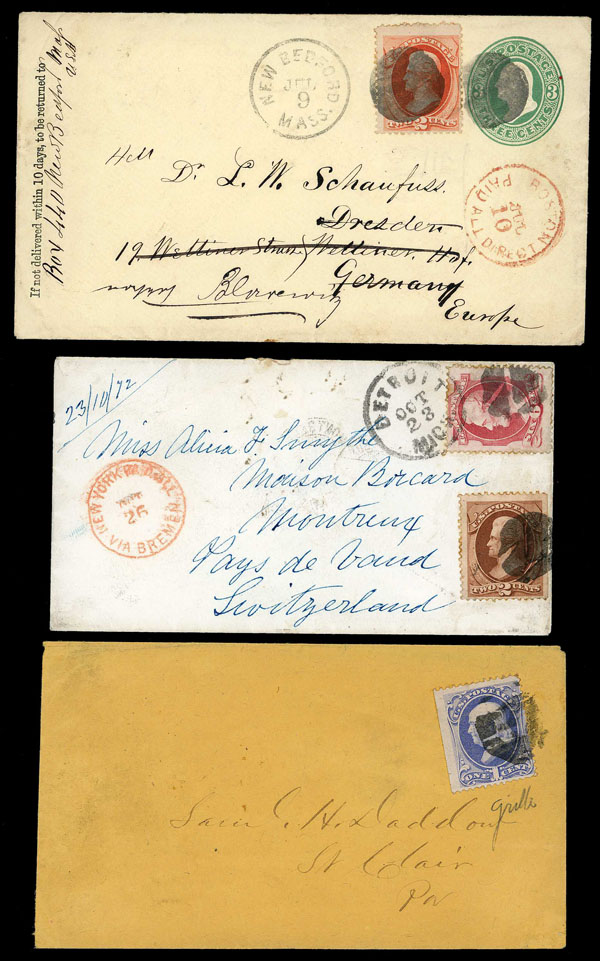 If not delivered within 10 days, to be returned to
Box 440 New Bedford Mass
USA
NEW BEDFORD
JUL
9
MASS.
U.S. POSTAGE
TWO 2 CENTS
U.S. POSTAGE
THREE CENTS
3
BOSTON
PAID ALL
JUL
10
DIRECT
Herr Dr. L. W. Schaufuss.
Dresden
19. Wettiner Strasse, Wettiner Hof.
Germany
Blasewitz
Europe
23/10/72
DETROIT
OCT
23
MICH.
NEW YORK PAID ALL
26
VIA BREMEN
Miss Alicia F. Smythe
Maison Boicard
Montreux
Pays de Vaud
Switzerland
U.S. POSTAGE
TWO 2 CENTS
U.S. POSTAGE
ONE 1 CENT
grille
St Clair
Pa